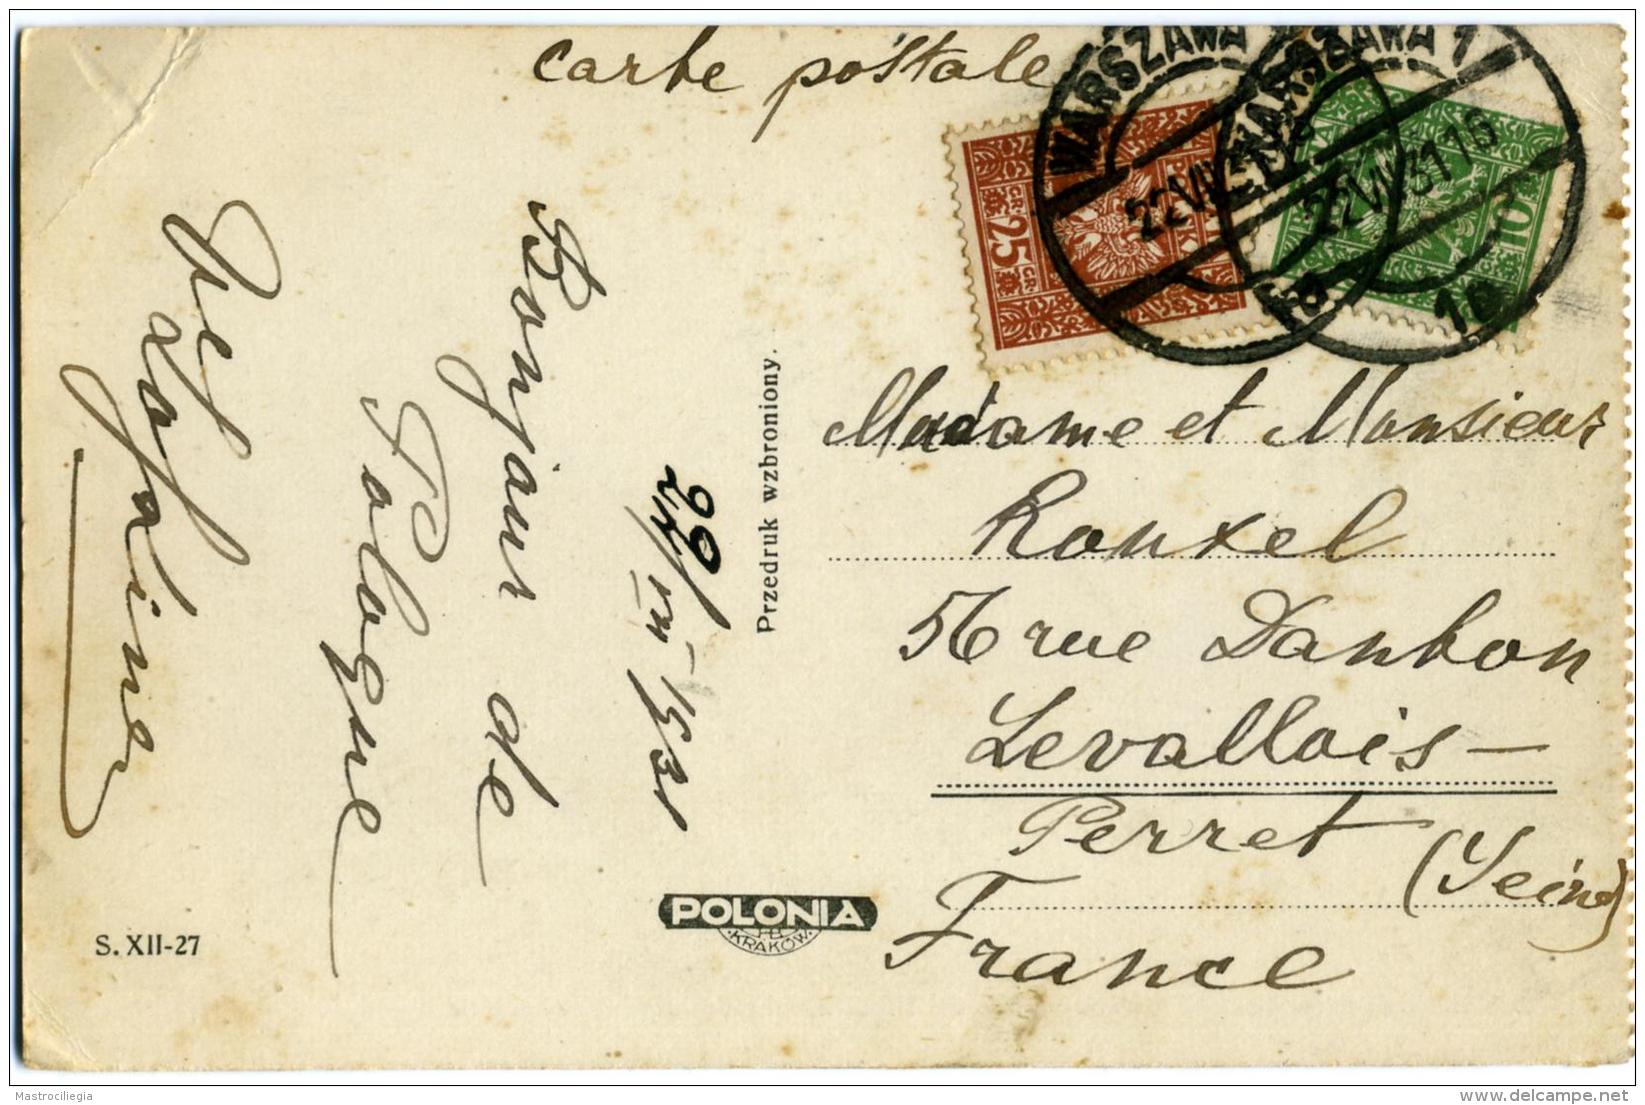 carte postale
WARSZAWA 1
22 VII 31 16
1a
WARSZAWA 1
22 VII 31 16
1a
25 GR
GR
10
Madame et Monsieur
Rouxel
56 rue Danton
Levallois–
Perret (Seine)
France
Przedruk wzbroniony.
22/VII–1931
Bonjour de
Pologne
POLONIA
KRAKÓW
S. XII-27
Mastrociliegia
delcampe.net